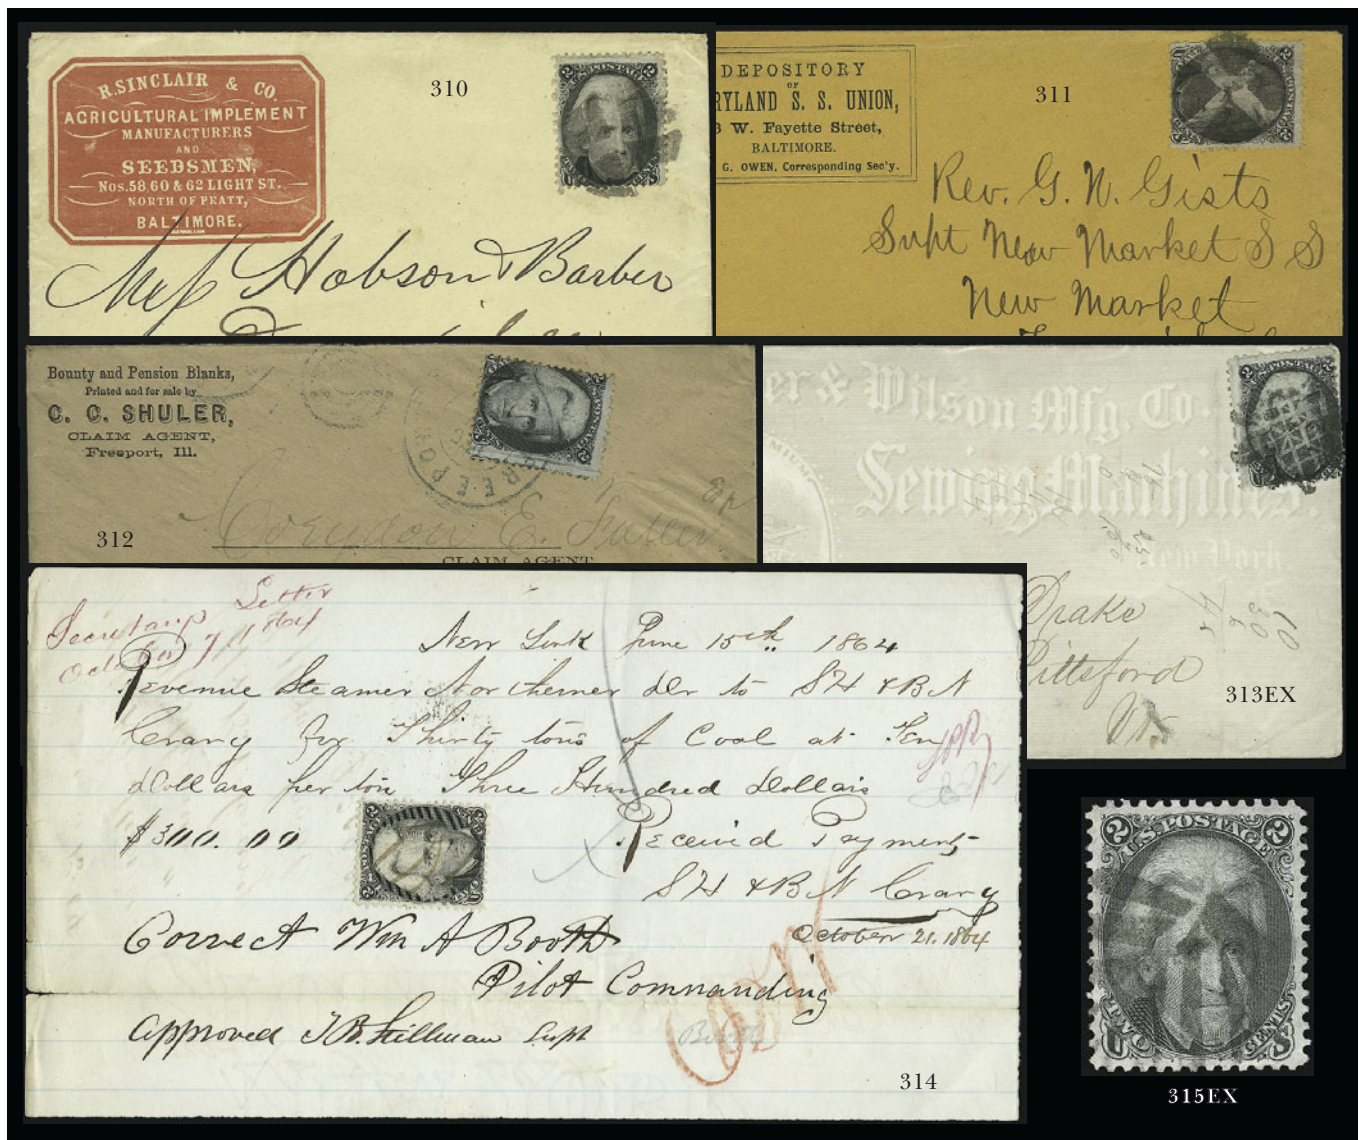 R. SINCLAIR & CO.
AGRICULTURAL IMPLEMENT
MANUFACTURERS
AND
SEEDSMEN,
Nos. 58.60 & 62 LIGHT ST.
NORTH OF PRATT,
BALTIMORE.
310
2 U.S. POSTAGE 2
Hobson & Barber
DEPOSITORY
OF
RYLAND S. S. UNION,
3 W. Fayette Street,
BALTIMORE.
G. OWEN, Corresponding Sec'y.
311
Rev. G. W. Gists
Supt New Market S S
New Market
Bounty and Pension Blanks,
Printed and for sale by
C. C. SHULER,
CLAIM AGENT,
Freeport, Ill.
312
FREEPO
Corydon E. Fuller
CLAIM AGENT
er & Wilson Mfg. Co.
Sewing Machines.
New York.
Drake
Pittsford
Vt.
313EX
Secretarys Letter
October 7 1864
New York June 15th 1864
Revenue Steamer Northerner Dr to S H & B N
Crary for Thirty tons of Coal at Ten
Dollars per ton Three Hundred Dollars
$300.00
Received Payment
S H & B N Crary
October 21. 1864
Correct Wm A Booth
Pilot Commanding
Approved T B Stillman Supt
314
2 U.S. POSTAGE 2
TWO CENTS
315EX